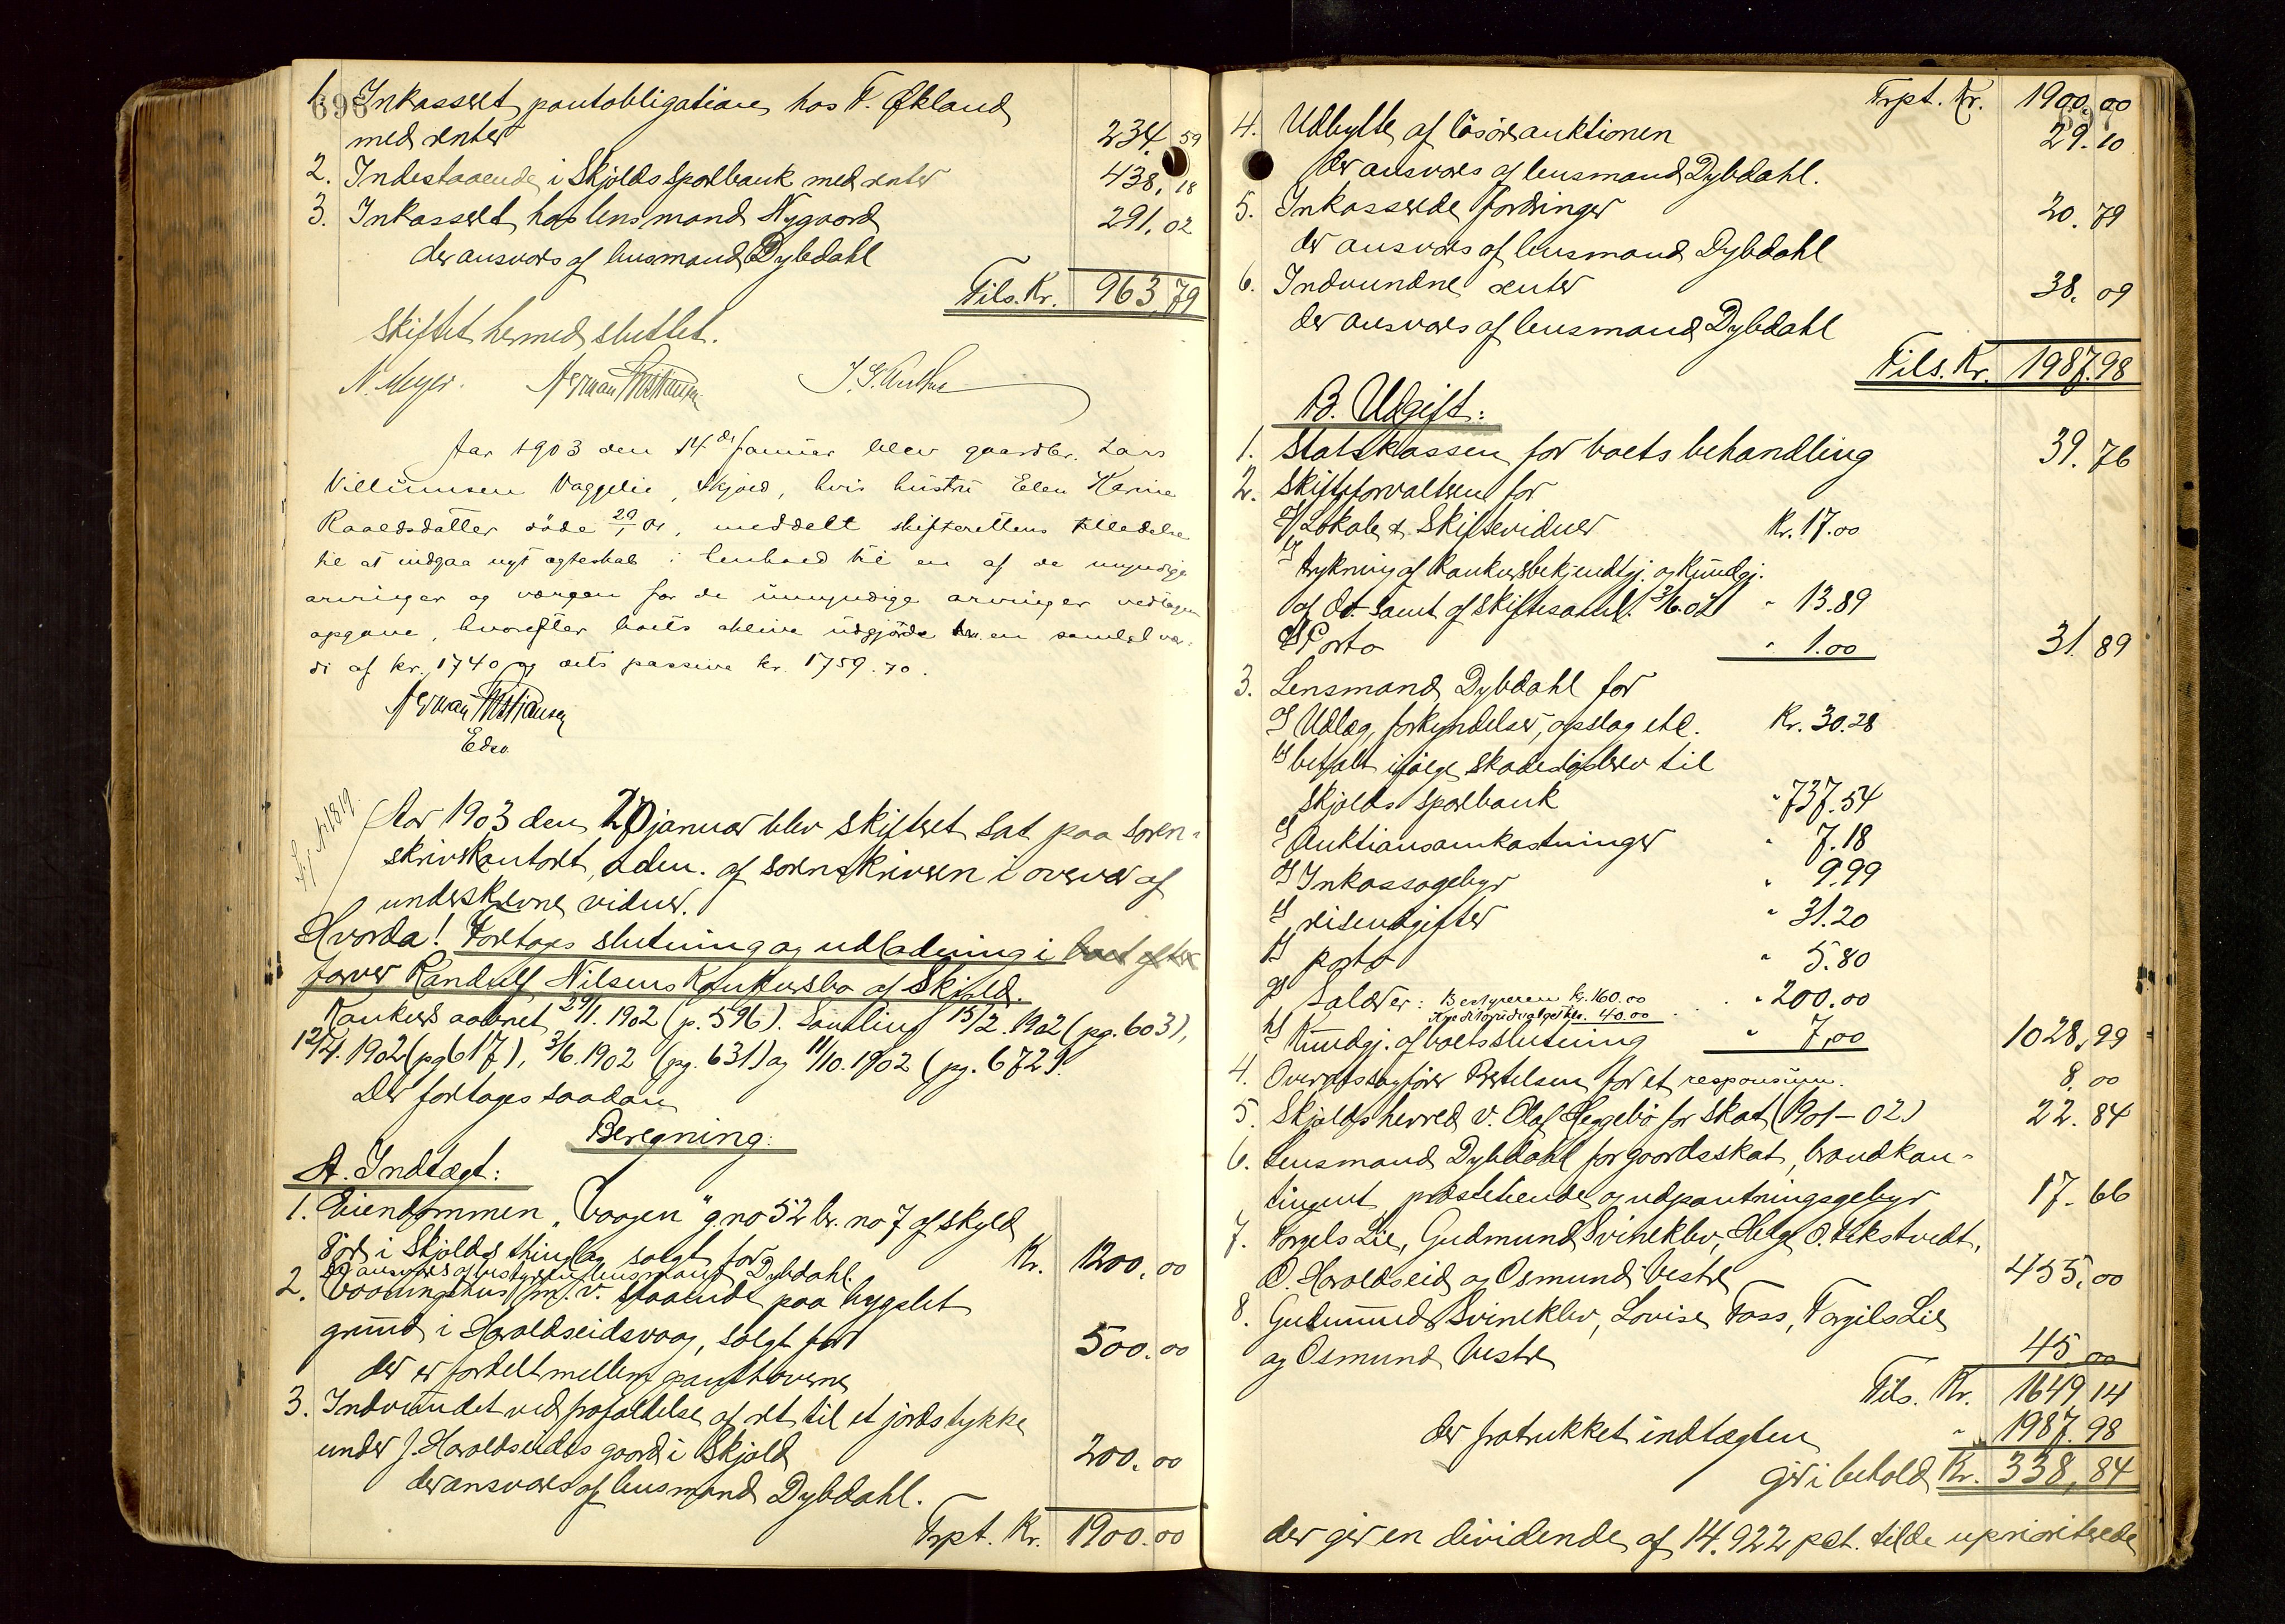 696
1. Inkasseret pantobligation hos T. Økland
med renter 234.59
2. Indestaaende i Skjolds sparebank med renter 438,18
3. Inkasseret hos lensmand Nygaard 291,02
der ansvares af lensmand Dybdahl
Tils. Kr. 963,79
Skiftet hermed sluttet.
N. Meyer.
Aar 1903 den 14de januar blev gaardbr. Lars
Villumsen Vaggelie, Skjold, hvis hustru Elen Karine
døde 29/1 01, meddelt skifterettens tilladelse
til at indgaa nyt ægteskab i henhold til en af de myndige
arvinger og værgen for de umyndige arvinger vedtagen
opgave, hvorefter boets aktiva udgjørde en samlet vær-
di af kr. 1740 og dets passiva kr. 1759.70.
Edsv.
Aar 1903 den 20 januar blev skifteret sat paa soren-
skriverkontoret, adm. af sorenskriveren i overvær af
underskrevne vidner.
Hvorda! Foretages slutning og udlodning i boet efter
Randulf Nilsens konkursbo af Skjold.
Konkurs aabnet 29/1. 1902 (p. 596). Samling 15/2. 1902 (pg. 603),
12/4. 1902 (pg 617), 3/6. 1902 (pg. 631) og 11/10. 1902 (pg. 672).
Der foretages saadan
Beregning:
A. Indtægt:
1. Eiendommen "Vaagen" g.no 52 br. no 7 af skyld
8 øre i Skjolds thinglag solgt for Kr. 1200.00
der ansvares af bestyreren lensmand Dybdahl.
2. Vaaningshus m. v. staaende paa bygslet
grund i Haraldseidsvaag, solgt for 500.00
der er fordelt mellem panthaverne
3. Indvundet ved frafaldelse af ret til et jordstykke
under J. Haraldseids gaard i Skjold 200.00
der ansvares af lensmand Dybdahl.
Trpt. Kr. 1900.00
697
Trpt. Kr. 1900.00
4. Udbytte af løsøreauktionen 29.10
der ansvares af lensmand Dybdahl.
5. Inkasserede fordringer 20.79
der ansvares af lensmand Dybdahl
6. Indvundne renter 38.09
der ansvares af lensmand Dybdahl
Tils. Kr. 1987.98
B. Udgift:
1. Statskassen for boets behandling 39.76
2. Skifteforvalteren for
a) Lokale & Skiftevidner Kr. 17.00
b) trykning af konkursbekjendtgj. og kundgj.
af samt af skiftesaml. 3/6.02 " 13.89
c) Porto " 1.00 31.89
3. Lensmand Dybdahl for
a) Udlæg, forkyndelser, opslag etc. Kr. 30.28
b) betalt ifølge skadesløsbrev til
Skjolds sparebank " 737.54
c) Auktionsomkostninger " 7.18
d) Inkassogebyr " 9.99
e) reiseudgifter " 31.20
f) porto " 5.80
g) Salærer: Bestyreren kr. 160.00
Kreditorudvalget kr. 40.00 " 200.00
h) Kundgj. af boets slutning " 7,00 1028,99
4. Overretssagfører Bertelsen for et responsum. 8.00
5. Skjolds herred v. Olaf Heggebø for skat (1901-02) 22.84
6. Lensmand Dybdahl for gaardsskat, brandkon-
tingent, prestetiende og udpantningsgebyr 17.66
7. Torgels Lie, Gudmund Svineklev, Helge O. Eikstvedt,
O. Haraldseid og Osmund Vestre 455.00
8. Gudmund Svineklev, Lovise Foss, Torgils Lie
og Osmund Vestre 45.00
Tils. Kr. 1649,14
der fratrukket indtægten " 1987.98
gir i behold Kr. 338,84
der gir en dividende af 14.922 pct. til de uprioriterede